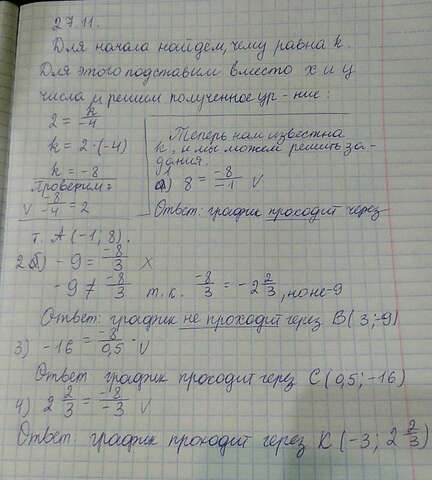 27.11.
Для начала найдем, чему равна k.
Для этого подставим вместо x и y
числа и решим полученное ур-ние:
2 = k/-4
k = 2·(-4)
k = -8
Проверим:
V -8/-4 = 2
Теперь нам известна
k, и мы можем решить за-
дания.
а) 8 = -8/-1 V
Ответ: график проходит через
т. A(-1; 8).
2б) -9 = -8/3 X
-9 ≠ -8/3 т.к. -8/3 = -2 2/3, но не -9
Ответ: график не проходит через B(3; -9)
3) -16 = -8/0,5 V
Ответ график проходит через C(0,5; -16)
4) 2 2/3 = -8/-3 V
Ответ: график проходит через K(-3; 2 2/3)